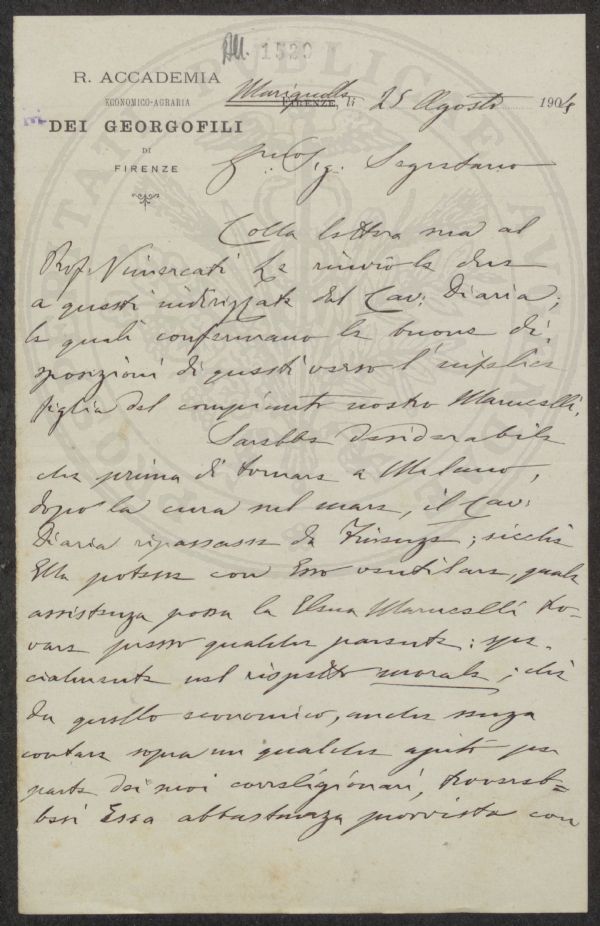 All. 1529
R. ACCADEMIA
ECONOMICO-AGRARIA
DEI GEORGOFILI
DI
FIRENZE
Marignolle FIRENZE, li 25 Agosto 1904
Sig. Segretario
Colla lettera sua al
Prof. Vimercati Le rinvio le due
a questi indirizzate dal Cav: Diaria;
le quali confermano le buone di-
sposizioni di questi verso l'infelice
figlia del compianto nostro Marucelli.
Sarebbe desiderabile
che prima di tornare a Milano,
dopo la cura nel mare, il Cav:
Diaria ripassasse da Firenze; sicchè
Ella potesse con Esso ventilare, quale
assistenza possa la Elena Marucelli tro-
vare presso qualche parente: spe-
cialmente nel rispetto morale; chè
da quello economico, anche senza
contare sopra un qualche ajuto per
parte dei suoi correligionari, troverеb=
besi Essa abbastanza provvista con